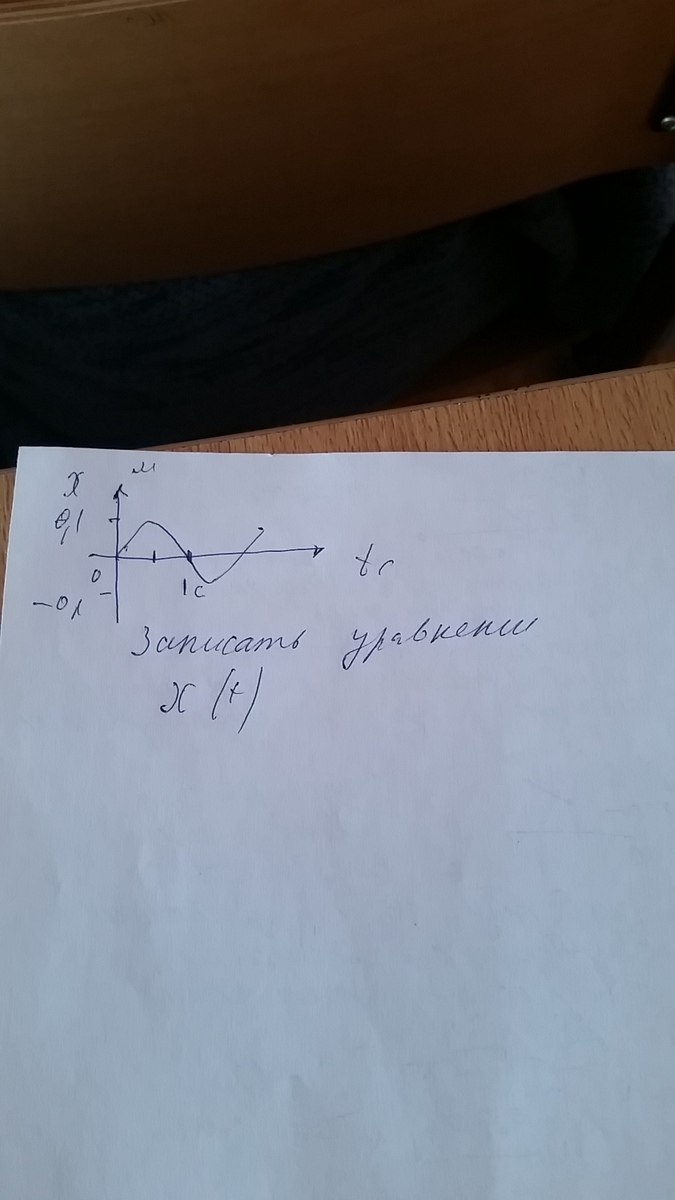 X м
0,1
0
1с
t с
-0,1
Записать уравнени
X (t)